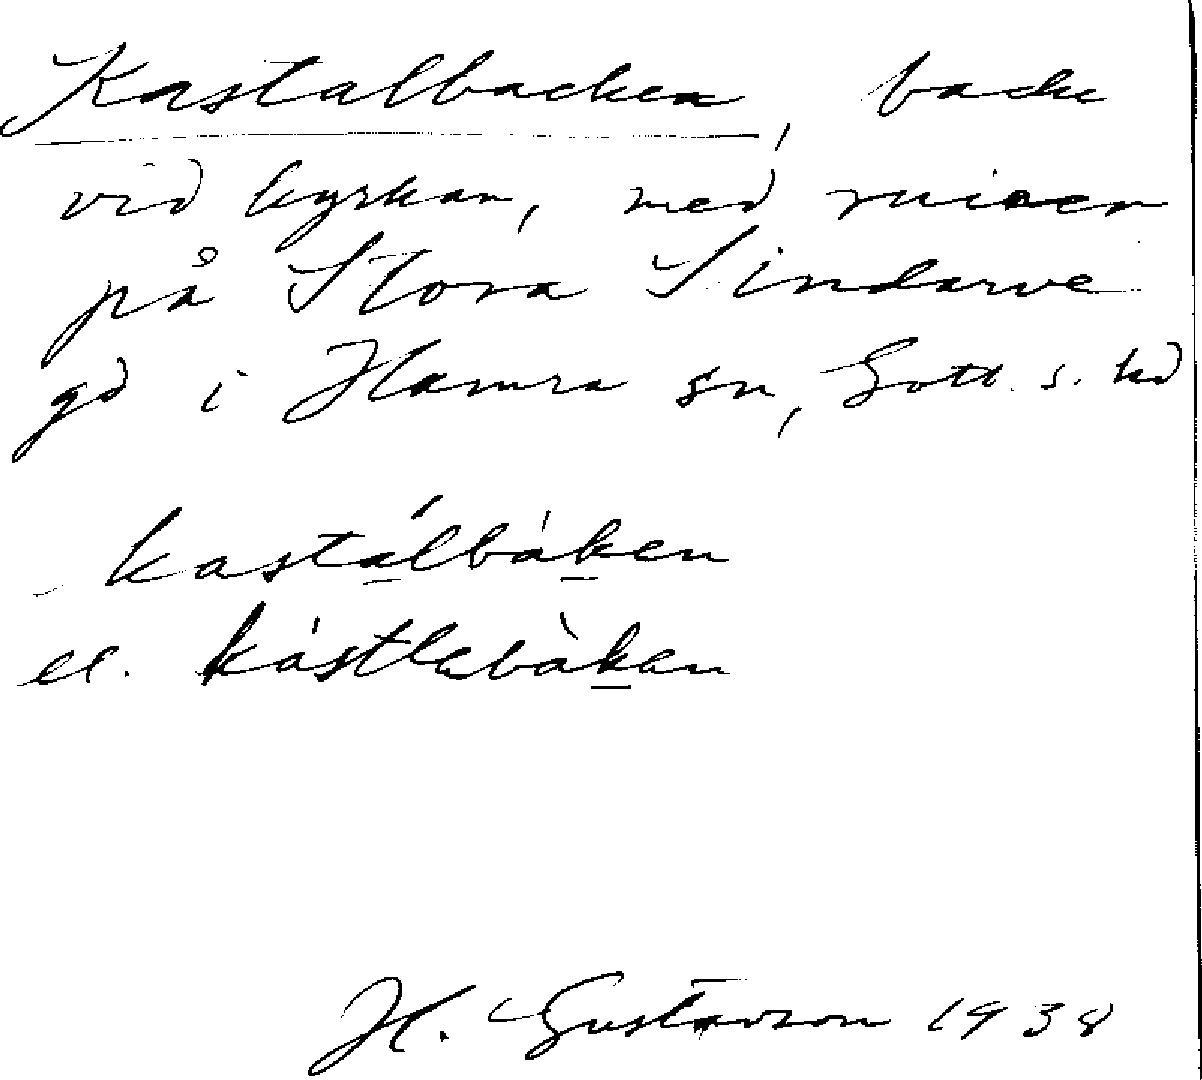 Kastalbacken, backe
vid kyrkan, med ruiner
på Stora Sindarve
gd i Hamra sn, Gotl. s. hd
kastálbáken
el. kástlebàken
H. Gustavson 1938